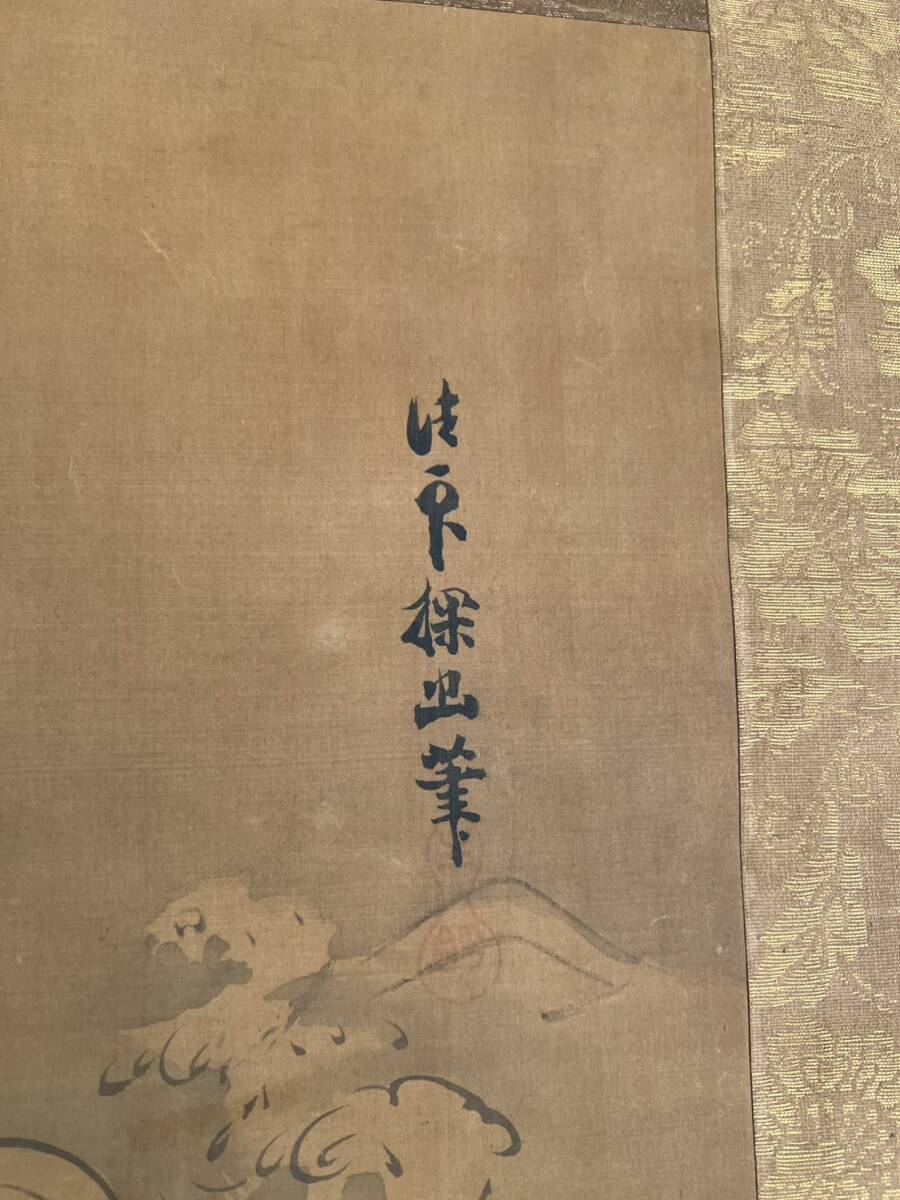 法印探幽筆